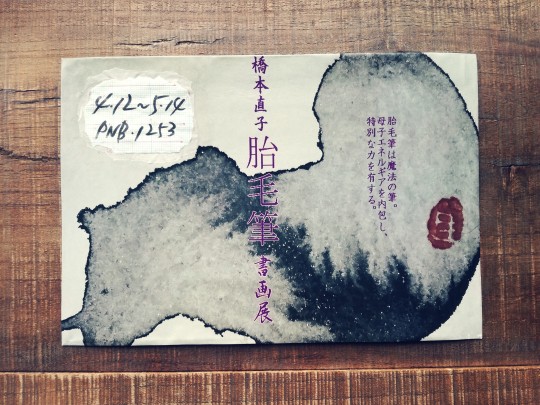 4.12~5.14
PNB.1253
橋本直子 胎毛筆 書画展
胎毛筆は魔法の筆。
母子エネルギアを内包し、
特別な力を有する。